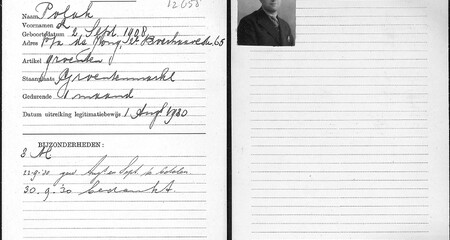 12058
Naam Polak
Voornamen
Geboortedatum 2 Sept. 1908
Adres p/a de Jong, 65
Artikel groenten
Staanplaats Groenmarkt
Gedurende 1 maand
Datum uitreiking legitimatiebewijs 1 Aug 1930
BIJZONDERHEDEN:
22-9-'30 Aug en Sept. te betalen.
30-9-'30 bedankt.